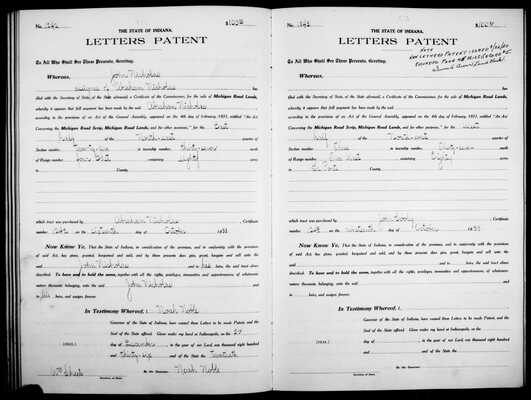 No.
THE STATE OF INDIANA.
LETTERS PATENT
To All Who Shall See These Presents, Greeting.
Whereas, John Nicholas
assignee of Abraham Nicholas has
filed with the Secretary of State, of the State aforesaid, a Certificate of the Commissioner, for the sale of Michigan Road Lands,
whereby it appears that full payment has been made by the said Abraham Nicholas
according to the provisions of an Act of the General Assembly, approved on the 4th day of February, 1831, entitled "An Act
Concerning the Michigan Road Scrip, Michigan Road Lands, and for other purposes," for the East
half of the North-east quarter of
Section number Twenty-six in township number Thirty-seven north
of Range number four West containing eighty
in County,
which tract was purchased by Abraham Nicholas, Certificate
number day of October 1835
Now Know Ye, That the State of Indiana, in consideration of the premises, and in conformity with the provisions
of said Act, has given, granted, bargained and sold, and by these presents does give, grant, bargain and sell unto the
said John Nicholas and to his heirs, the said tract above
described. To have and to hold the same, together with all the rights, privileges, immunities and appurtenances, of whatsoever
nature thereunto belonging, unto the said John Nicholas and
to his heirs, and assigns forever.
In Testimony Whereof, I, Noah Noble
Governor of the State of Indiana, have caused these Letters to be made Patent, and the
Seal of the State affixed. Given under my hand at Indianapolis, on the
(SEAL) day of December in the year of our Lord, one thousand eight hundred
and thirty-six and of the State the twentieth
By the Governor: Noah Noble
Wm Sheets
Secretary of State.
No.
THE STATE OF INDIANA.
LETTERS PATENT
NOTE
To All Who Shall See These Presents, Greeting.
Whereas,
has
filed with the Secretary of State, of the State aforesaid, a Certificate of the Commissioner, for the sale of Michigan Road Lands,
whereby it appears that full payment has been made by the said
according to the provisions of an Act of the General Assembly, approved on the 4th day of February, 1831, entitled "An Act
Concerning the Michigan Road Scrip, Michigan Road Lands, and for other purposes," for the West
half of the North-east quarter of
Section number Three in township number Thirty-seven north
of Range number containing Eighty
in La Porte County,
which tract was purchased by, Certificate
number day of October 1835
Now Know Ye, That the State of Indiana, in consideration of the premises, and in conformity with the provisions
of said Act, has given, granted, bargained and sold, and by these presents does give, grant, bargain and sell unto the
said and to heirs, the said tract above
described. To have and to hold the same, together with all the rights, privileges, immunities and appurtenances, of whatsoever
nature thereunto belonging, unto the said and
to heirs, and assigns forever.
In Testimony Whereof, I,
Governor of the State of Indiana, have caused these Letters to be made Patent, and the
Seal of the State affixed. Given under my hand at Indianapolis, on the
(SEAL) day of in the year of our Lord, one thousand eight hundred
and and of the State the
By the Governor:
Secretary of State.